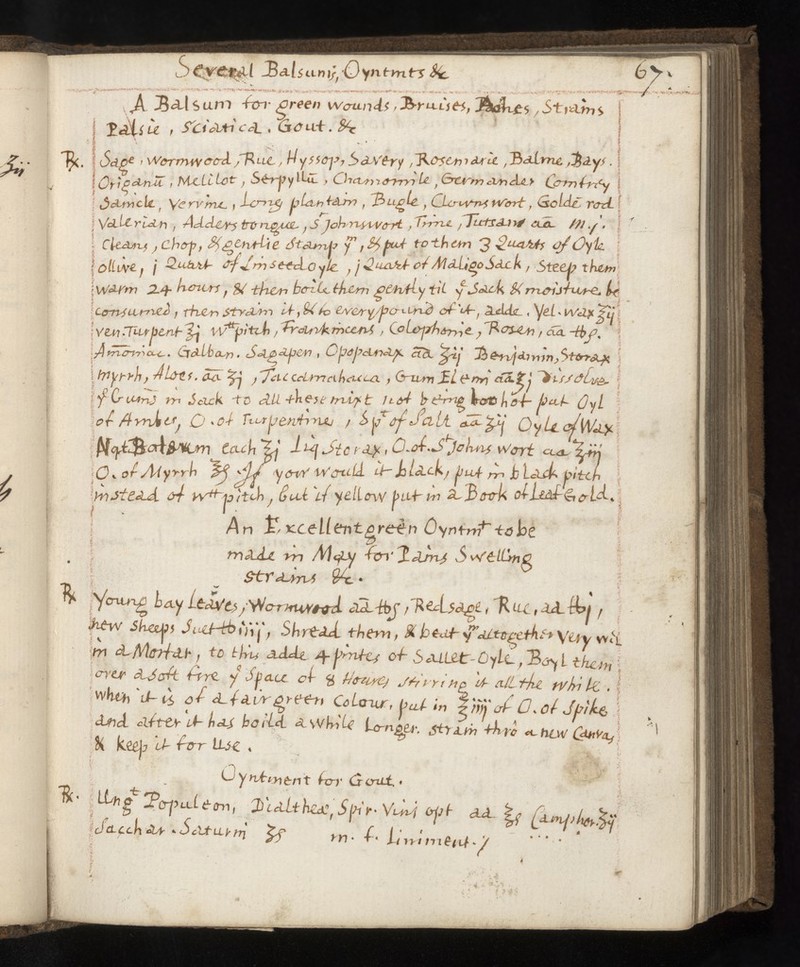 Several Balsums, Oyntmts &c 67:
A Balsum for green wounds, Bruises, Aches, Strains
Palsie, Sciatica, Gout. &c
℞. Sage, wormwood, Rue, Hyssop, Savery, Rosemarie, Balme, Bays.
Origanū, Melilot, Serpyllū, Chamomile, Germander Comfrey
Sanicle, Vervine, Long plantain, Bugle, Clowns wort, Goldē rod
Valerian, Adders tongue, St Johnswort, Time, Tutsane aā m j.
Cleans, Chop, & gentlie stamp ym, & put to them 3 Quarts of Oyle
ollive, j Quart of Linseed oyle, j Quart of Maligo Sack, Steep them
warm 24 hours, & then boile them gently til ye Sack & moisture be
consumed, then strain it, & to every pound of it, adde. Yel. wax ℥ij
Ven. Turpent ℥j wtt pitch, Frankincens, Colophonie, Rosen, aā
Amōniac. Galban. Sagapen, Opopanax aā ℥ij Benjamin, Storax
myrrh, Aloes. aā ℥j, Taccamahacca, Gum Elemj aā ℥j Dissolve
ye Gums in Sack to all these mixt not being too hot put Oyl
of Amber, O. of Turpentine, Spt of Salt aā ℥ij Oyle of Wax
Nat Balsum each ℥j Liq Storax, O. of. St Johns wort aa ℥iij
O. of Myrrh ℥ß If you would it black, put in black pitch
instead of wtt pitch, but if yellow put in a Book of Leaf Gold.
An Excellent green Oyntmt to be
made in May for Pains Swelling
Strains &c.
℞ Young bay leaves, Wormwood aā ℔ß, Red sage, Rue, aa ℔j,
new sheeps Suet ℔iiij, Shread them, & beat ym altogether very wel
in a Mortar, to this adde 4 pintes of Sallet-Oyle, Boyl them
over a Soft fire ye Space of 8 Houres stirring it all the while.
when it is of a fair green Colour, put in ℥iiij of O. of Spike
and after it has boild a while Longer. strain thrō a new Canvas
& keep it for Use.
Oyntment for Gout.
℞. Ungt Populeon, Dialtheæ, Spir. Vini opt aa ℥ß Camphor. ℥ij
Sacchar. Saturni ℥ß m. f. liniment.